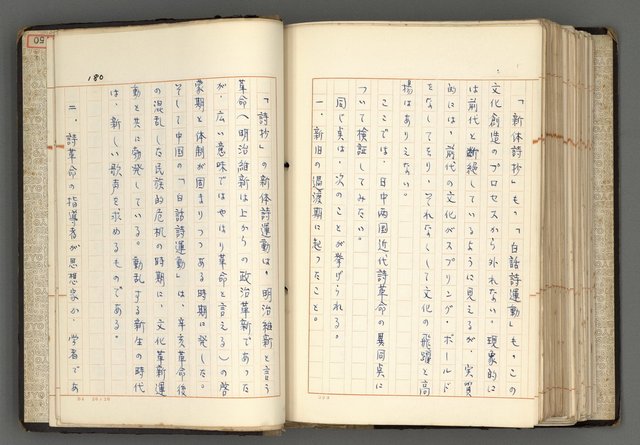 「新体詩抄」も、「白話詩運動」も、この
文化創造のプロセスから外れない。現象的に
は前代と断絶しているように見えるが、実質
的には、前代の文化がスプリング・ボールド
をなしており、それなくして文化の飛躍と高
揚はありえない。
ここでは、日中両国近代詩革命の異同点に
ついて検証してみたい。
同じ点は、次のことが挙げられる。
一、新旧の過渡期に起ったこと。
180
「詩抄」の新体詩運動は、明治維新と言う
革命(明治維新は上からの政治革新であった
が、広い意味ではやはり革命と言える)の啓
蒙期と体制が固まりつつある時期に発した。
そして中国の「白話詩運動」は、辛亥革命後
の混乱した民族的危机の時期に、文化革新運
動と共に勃発している。動乱する新生の時代
は、新しい歌声を求めるものである。
二、詩革命の指導者が思想家か、学者であ
50